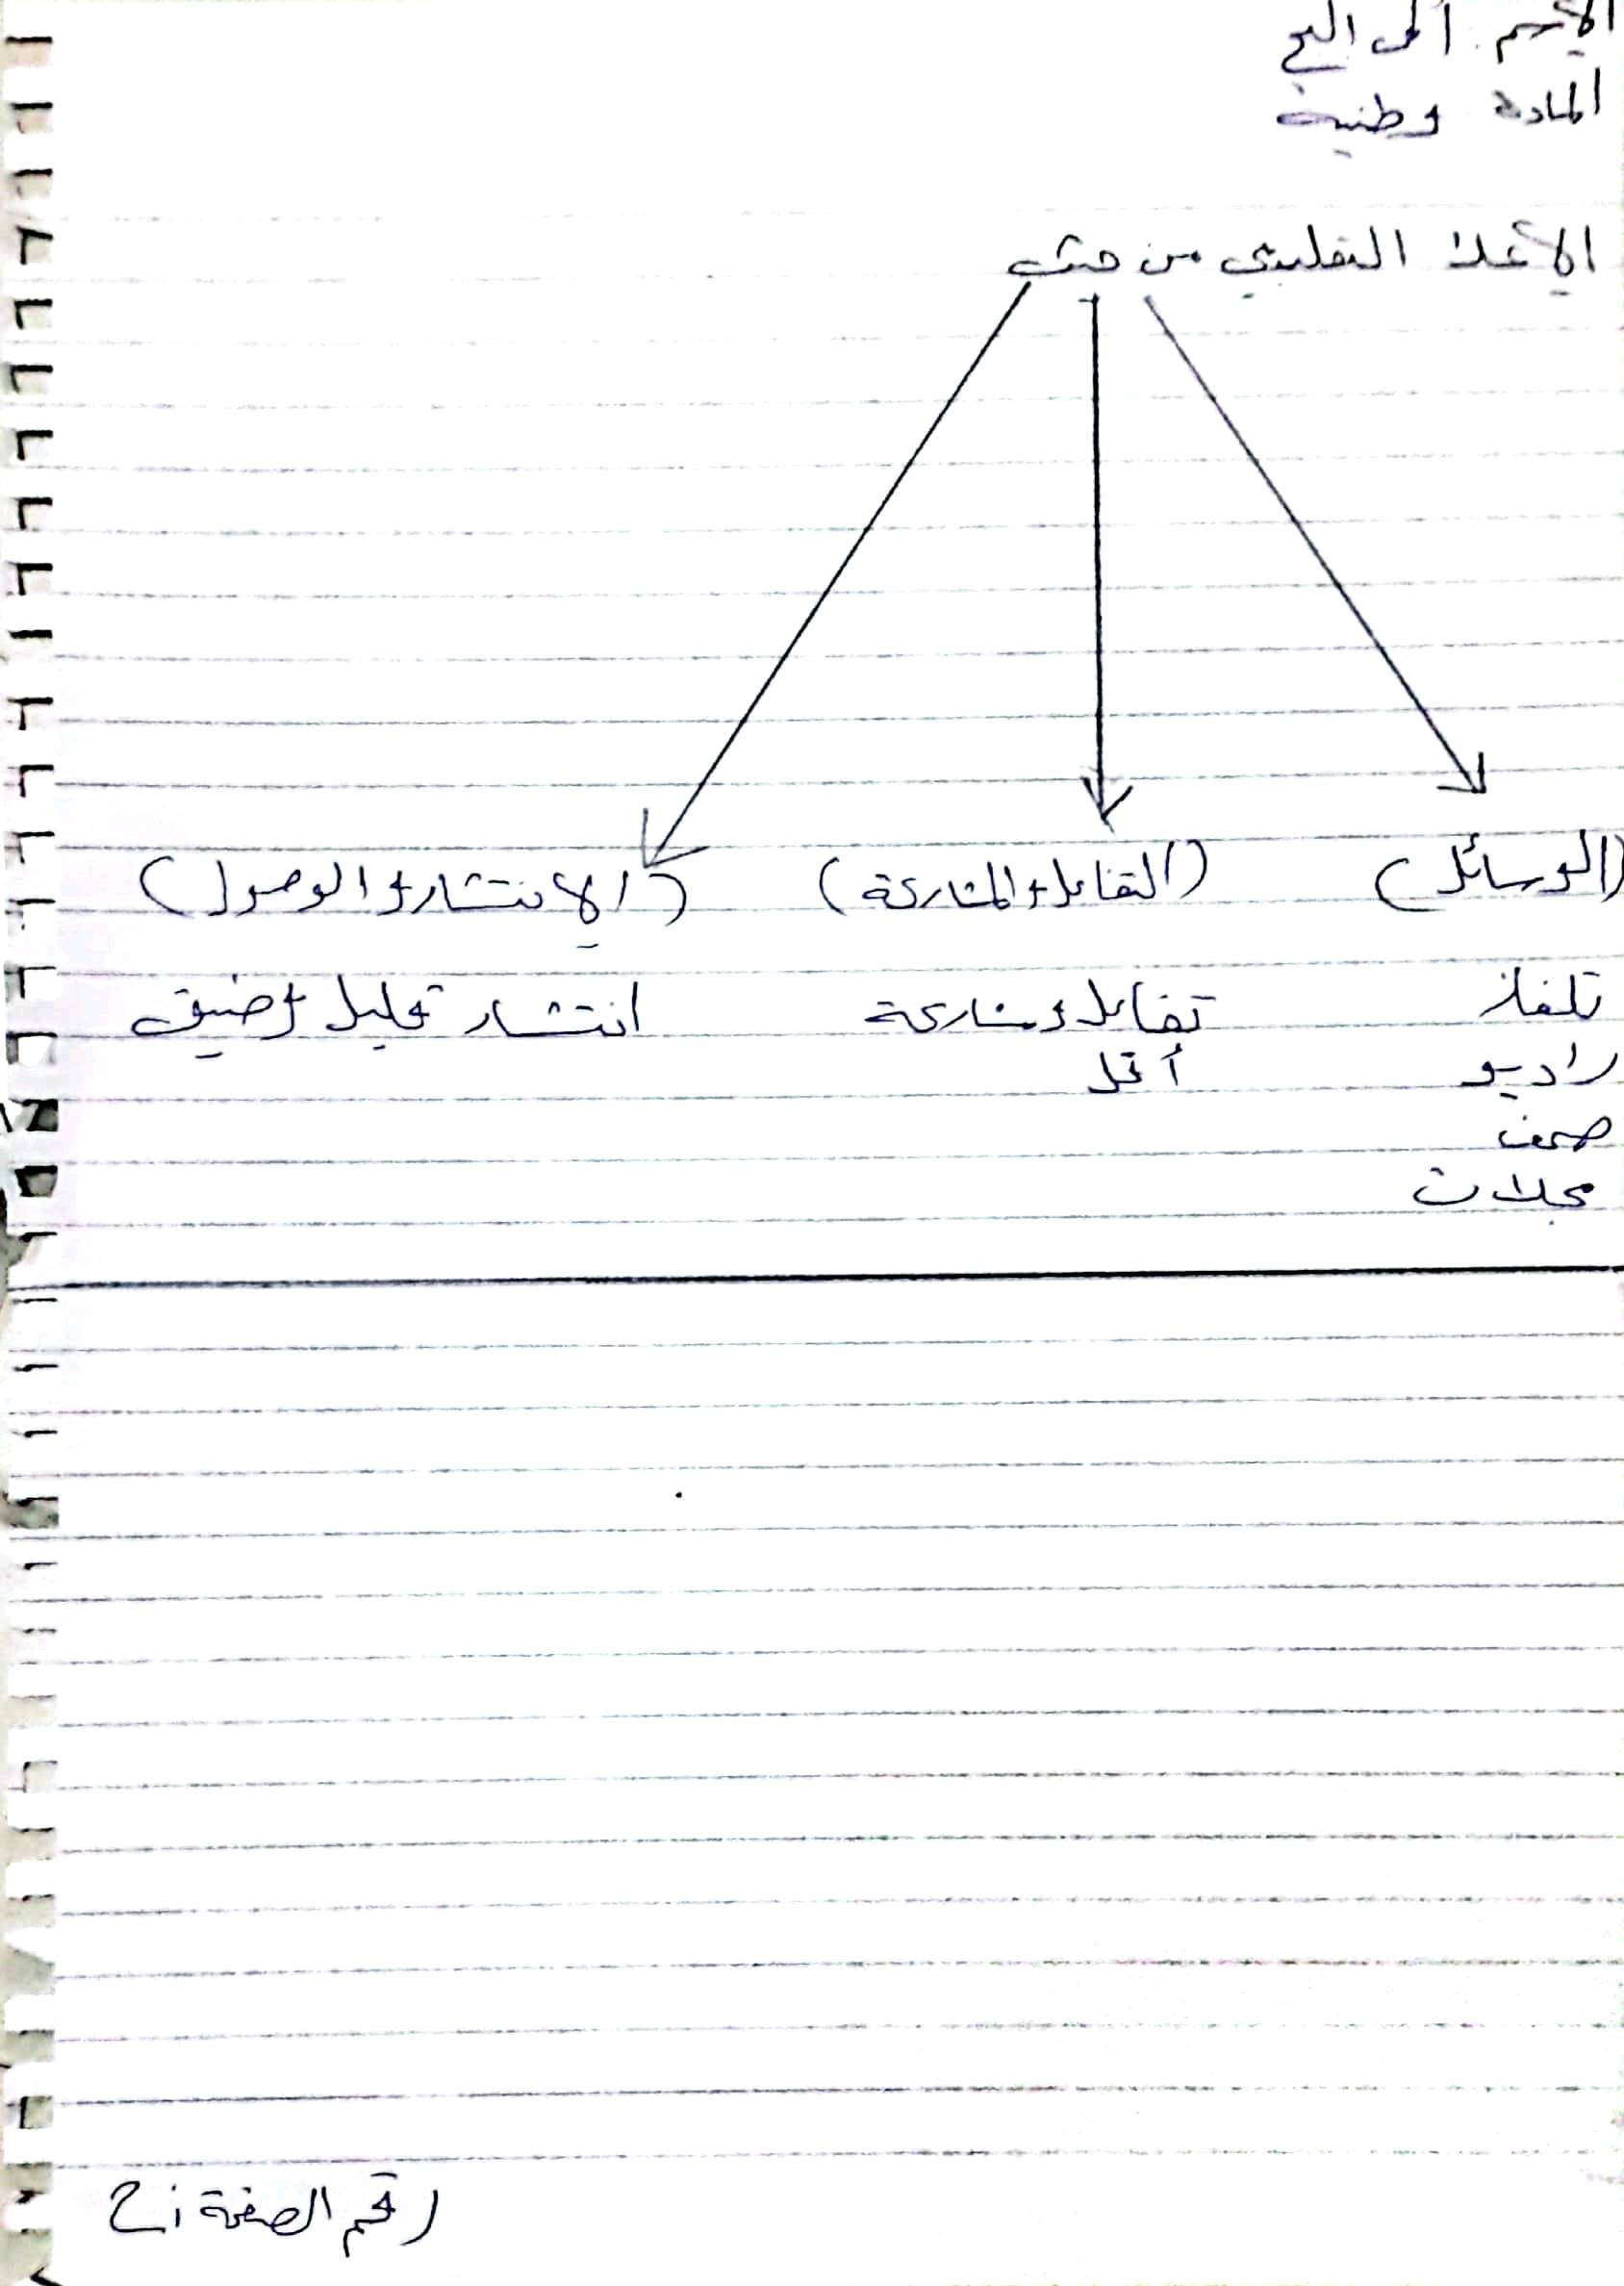 الإسم
المادة وطنية
الإعلا التقليدي من حيث
(الوسائل) (التفاعل والمشاركة) (الإنتشار والوصول)
تلفاز تفاعل ومشاركة انتشار قليل وضيق
راديو أقل
صحف
مجلات
رقم الصفحة :